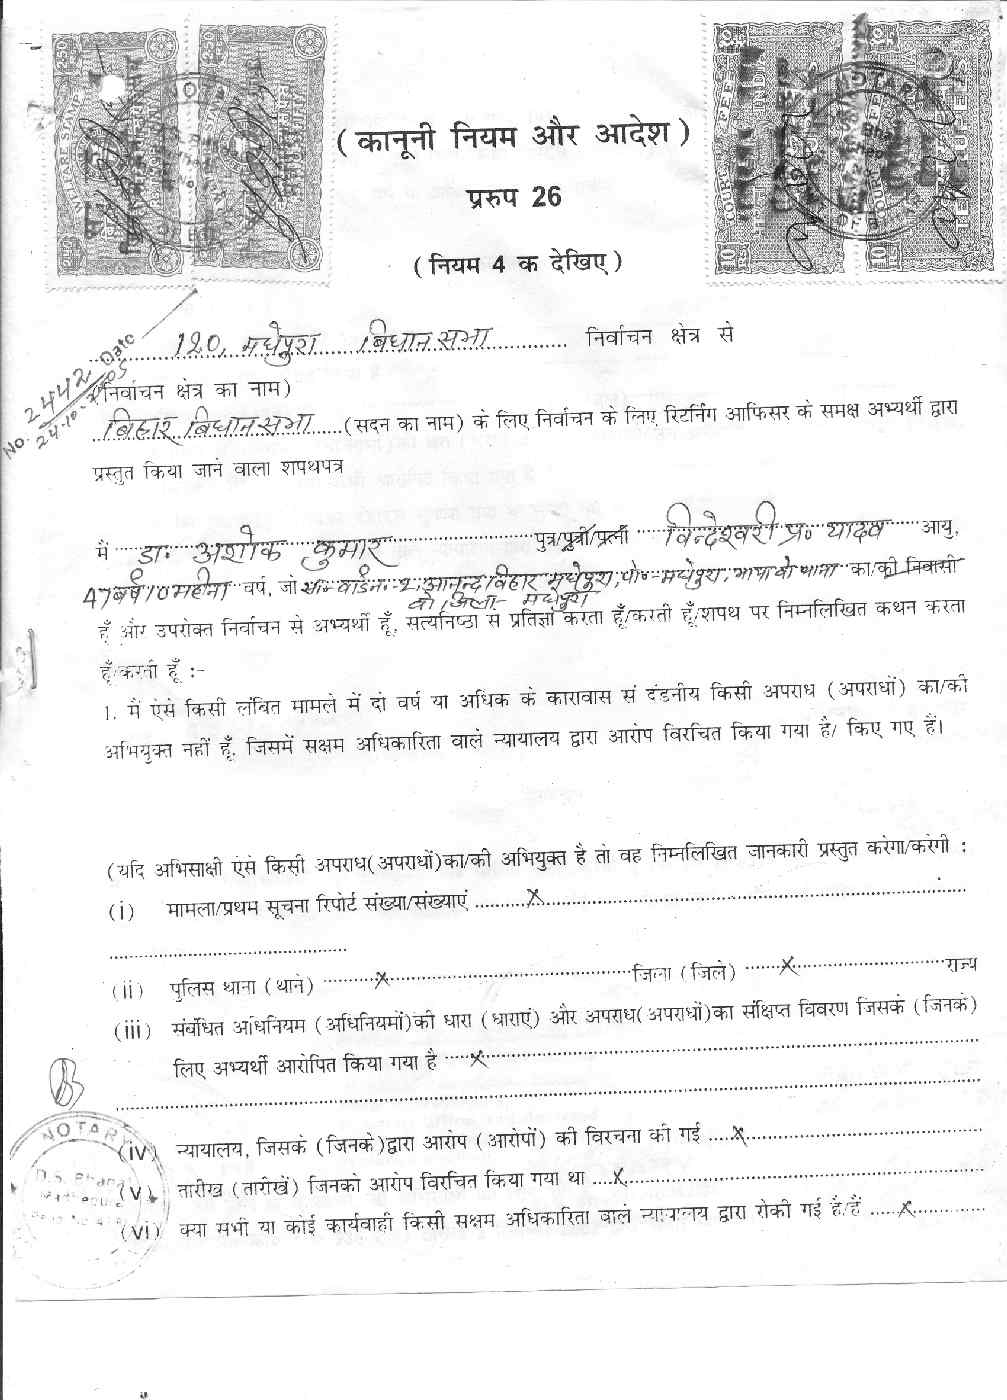 WELFARE STAMP
COURT FEES
INDIA
TEN RUPEES
NOTARY
( कानूनी नियम और आदेश )
प्ररुप 26
( नियम 4 क देखिए )
No. 2442 Date
24-10-2005
120, मधेपुरा विधान सभा निर्वाचन क्षेत्र से
(निर्वाचन क्षेत्र का नाम)
बिहार विधान सभा (सदन का नाम) के लिए निर्वाचन के लिए रिटर्निंग आफिसर के समक्ष अभ्यर्थी द्वारा
प्रस्तुत किया जाने वाला शपथपत्र
मैं डा॰ अशोक कुमार पुत्र/पुत्री/पत्नी विन्देश्वरी प्र॰ यादव आयु,
47 वर्ष 10 महीना वर्ष, जो वार्ड नं॰ 2, आनन्द विहार मधेपुरा, पो॰-मधेपुरा, थाना का/की निवासी
जिला- मधेपुरा
हूँ और उपरोक्त निर्वाचन से अभ्यर्थी हूँ, सत्यनिष्ठा से प्रतिज्ञा करता हूँ/करती हूँ/शपथ पर निम्नलिखित कथन करता
हूँ/करती हूँ :-
1. मैं ऐसे किसी लंबित मामले में दो वर्ष या अधिक के कारावास से दंडनीय किसी अपराध (अपराधों) का/की
अभियुक्त नहीं हूँ, जिसमें सक्षम अधिकारिता वाले न्यायालय द्वारा आरोप विरचित किया गया है/ किए गए हैं।
(यदि अभिसाक्षी ऐसे किसी अपराध(अपराधों)का/की अभियुक्त है तो वह निम्नलिखित जानकारी प्रस्तुत करेगा/करेगी :
(i) मामला/प्रथम सूचना रिपोर्ट संख्या/संख्याएं ..........x..........
(ii) पुलिस थाना (थाने) ..........x..........जिला (जिले) ..........x..........राज्य
(iii) संबंधित अधिनियम (अधिनियमों)की धारा (धाराएं) और अपराध(अपराधों)का संक्षिप्त विवरण जिसके (जिनके)
लिए अभ्यर्थी आरोपित किया गया है ..........x..........
(iv) न्यायालय, जिसके (जिनके)द्वारा आरोप (आरोपों) की विरचना की गई ..........x..........
(v) तारीख (तारीखें) जिनको आरोप विरचित किया गया था ..........x..........
(vi) क्या सभी या कोई कार्यवाही किसी सक्षम अधिकारिता वाले न्यायालय द्वारा रोकी गई है/हैं ..........x..........
NOTARY